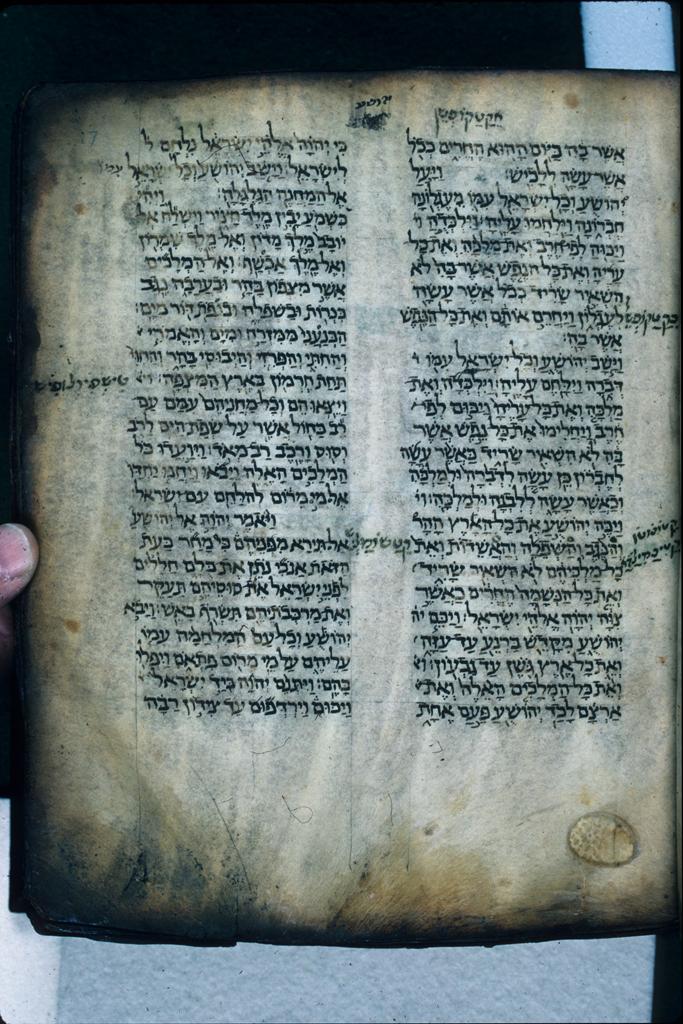 אשר בה ביום ההוא החרים ככל
אשר עשה ללכיש׃ ויעל
יהושע וכל ישראל עמו מעגלונה
חברונה וילחמו עליה׃ וילכדוה ו
ויכוה לפי חרב ואת מלכה ואת כל
עריה ואת כל הנפש אשר בה לא
השאיר שריד ככל אשר עשה
לעגלון ויחרם אותם ואת כל הנפש
אשר בה׃
וישב יהושע וכל ישראל עמו
דברה וילחם עליה׃ וילכדה ואת
מלכה ואת כל עריה ויכום לפי
חרב ויחרימו את כל נפש אשר
בה לא השאיר שריד כאשר עשה
לחברון כן עשה לדברה ולמלכה
וכאשר עשה ללבנה ולמלכה׃ וי
ויכה יהושע את כל הארץ ההר
והנגב והשפלה והאשדות ואת
כל מלכיהם לא השאיר שריד
ואת כל הנשמה החרים כאשר
צוה יהוה אלהי ישראל׃ ויכם יה
יהושע מקדש ברנע ועד עזה
ואת כל ארץ גשן ועד גבעון׃ וא
ואת כל המלכים האלה ואת
ארצם לכד יהושע פעם אחת
כי יהוה אלהי ישראל נלחם ל
לישראל׃ וישב יהושע וכל ישראל עמו
אל המחנה הגלגלה׃ ויהי
כשמע יבין מלך חצור וישלח אל
יובב מלך מדון ואל מלך שמרון
ואל מלך אכשף׃ ואל המלכים
אשר מצפון בהר ובערבה נגב
כנרות ובשפלה ובנפות דור מים׃
הכנעני ממזרח ומים והאמרי
והחתי והפרזי והיבוסי בהר והחוי
תחת חרמון בארץ המצפה׃ וי
ויצאו הם וכל מחניהם עמם עם
רב כחול אשר על שפת הים לרב
וסוס ורכב רב מאד׃ ויועדו כל
המלכים האלה ויבאו ויחנו יחדו
אל מי מרום להלחם עם ישראל׃
ויאמר יהוה אל יהושע
אל תירא מפניהם כי מחר כעת
הזאת אנכי נתן את כלם חללים
לפני ישראל את סוסיהם תעקר
ואת מרכבותיהם תשרף באש׃ ויבא
יהושע וכל עם המלחמה עמו
עליהם על מי מרום פתאם ויפלו
בהם׃ ויתנם יהוה ביד ישראל
ויכום וירדפום עד צידון רבה